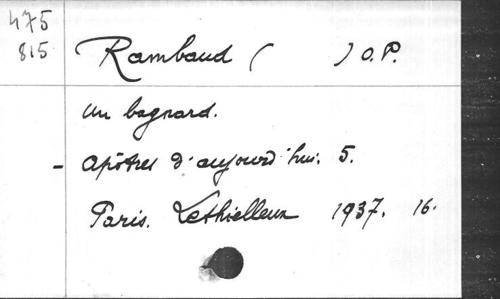 475
815
Rambaud ( ) O.P.
Un bagnard.
- Apôtres d'aujourd'hui. 5.
Paris. Lethielleux 1937. 16.